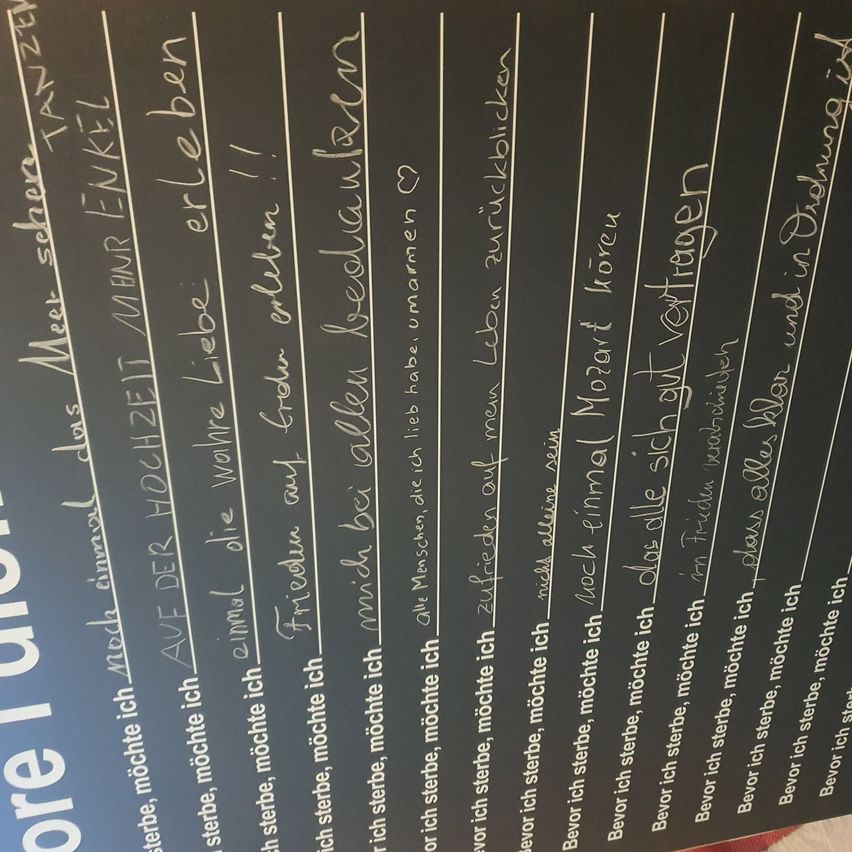 ore I die
sterbe, möchte ich noch einmal das Meer sehen
TANZEN
sterbe, möchte ich AUF DER HOCHZEIT MEINR ENKEL
ch sterbe, möchte ich einmal die wahre Liebe erleben
ich sterbe, möchte ich Frieden auf Erden erleben !!
r ich sterbe, möchte ich mich bei allen bedanken
or ich sterbe, möchte ich alle Menschen, die ich lieb habe, umarmen ♡
vor ich sterbe, möchte ich zufrieden auf mein Leben zurückblicken
Bevor ich sterbe, möchte ich nicht alleine sein
Bevor ich sterbe, möchte ich noch einmal Mozart hören
Bevor ich sterbe, möchte ich das alle sich gut vertragen
Bevor ich sterbe, möchte ich im Frieden verabschieden
Bevor ich sterbe, möchte ich , dass alles klar und in Ordnung ist
Bevor ich sterbe, möchte ich
Bevor ich sterbe, möchte ich
Bevor ich sterb